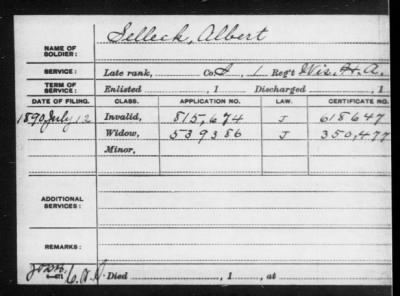 Selleck, Albert
NAME OF SOLDIER:
SERVICE: Late rank, Co. I, 1 Reg't Wis. H. A.
TERM OF SERVICE: Enlisted , 1 Discharged , 1
DATE OF FILING. CLASS. APPLICATION NO. LAW. CERTIFICATE NO.
1890 July 12 Invalid, 815,674 J 618647
Widow, 539386 J 350,477
Minor,
ADDITIONAL SERVICES:
REMARKS:
Died , 1 , at